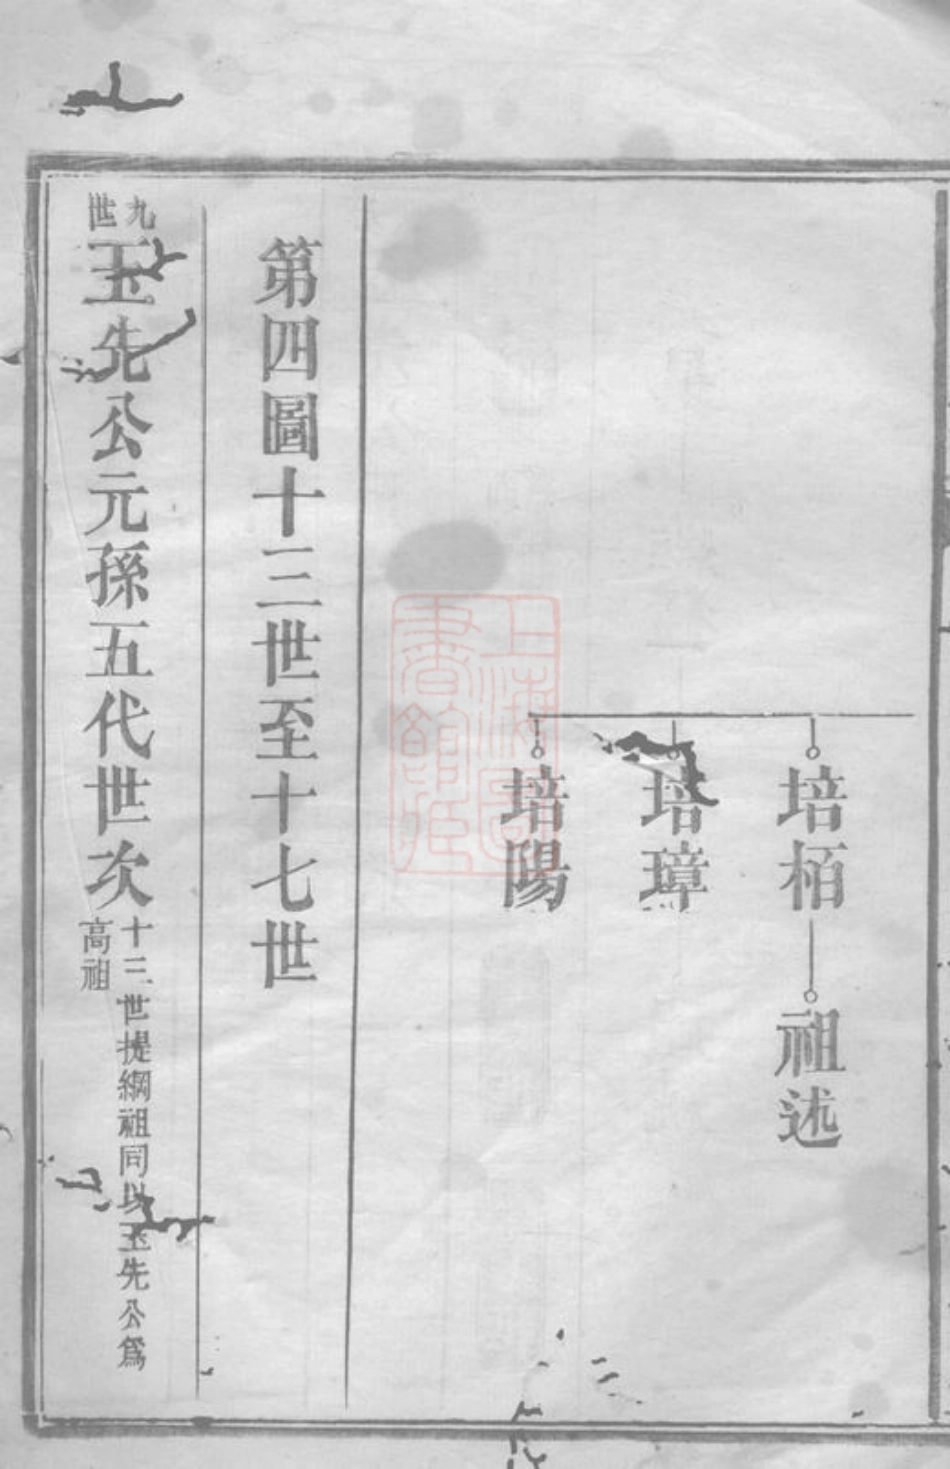 培栢
祖述
培璋
培陽
第四圖十三世至十七世
九世玉先公元孫五代世次
十三世提綱祖同以玉先公爲
高祖
上海圖
書館藏